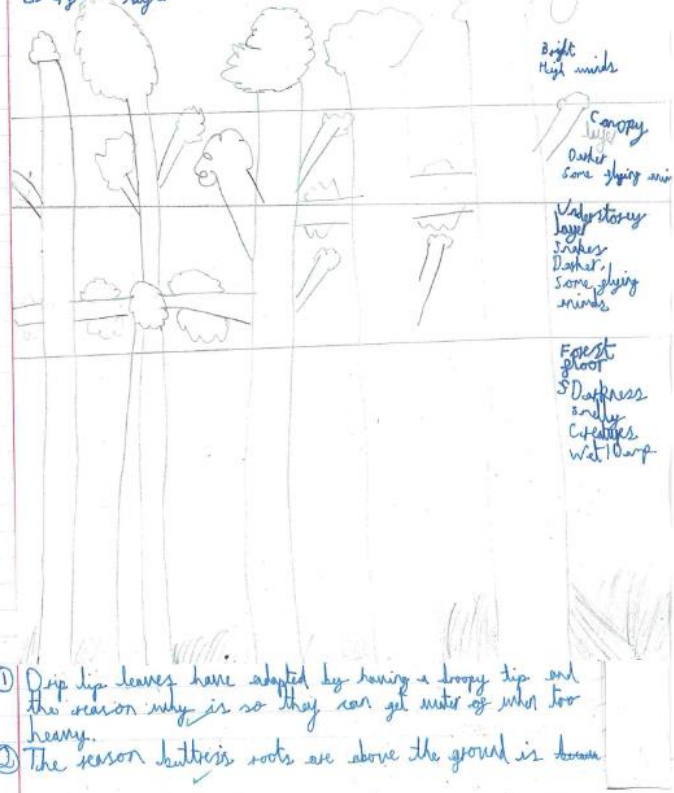 Bright
High winds
Canopy
layer
Darker
Some flying
Understorey
layer
Snakes
Darker.
Some flying
winds
Forest
floor
Darkness
Smelly
Creatures
Wet/Damp
① Drip tip leaves have adapted by having a droopy tip and
the reason why is so they can get water of when too
heavy.
② The reason buttress roots are above the ground is